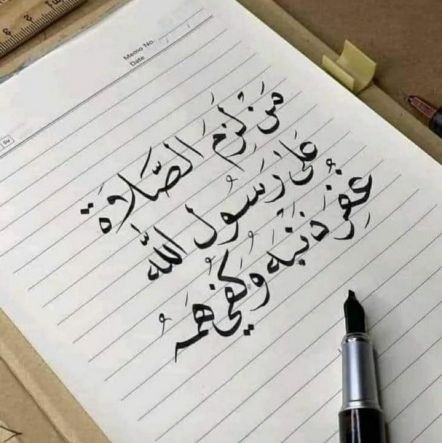 Memo No.
Date
مَن لَزِمَ الصَّلَاة
عَلىٰ رَسُول اللّٰه
غُفِرَ ذَنبَهُ وَ كُفِيَ هَمهُ